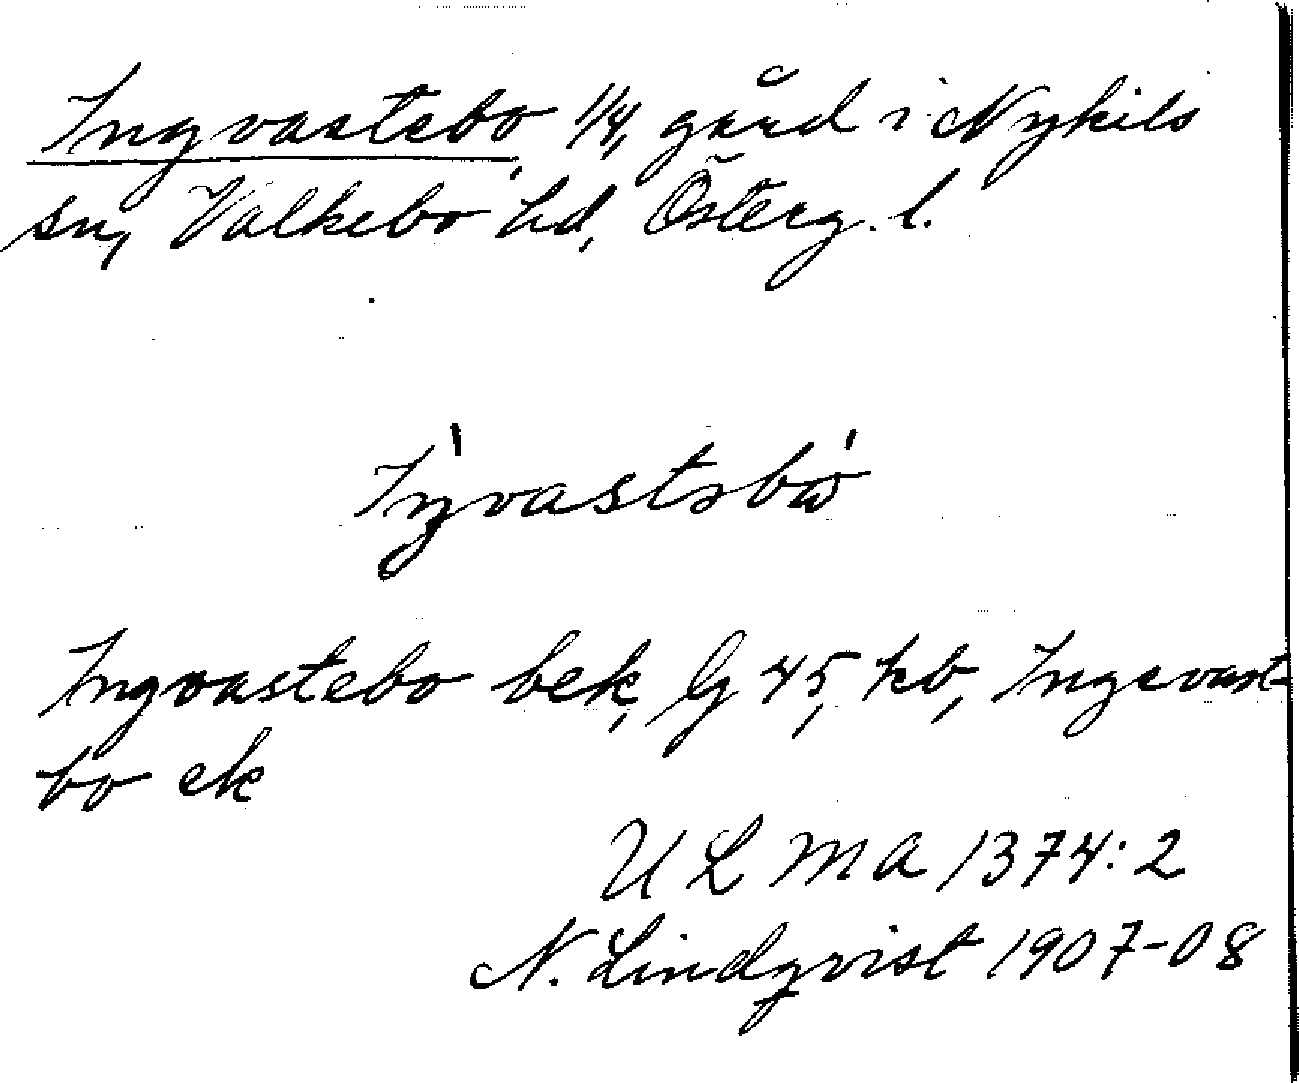 Ingvastebo, 1/4, gård i Nykils
sn, Valkebo hd, Österg. l.
Iŋvastəbω
Ingvastebo bek, G 45, kb, Ingevast-
bo ek
ULMA 1374:2
N. Lindqvist 1907-08